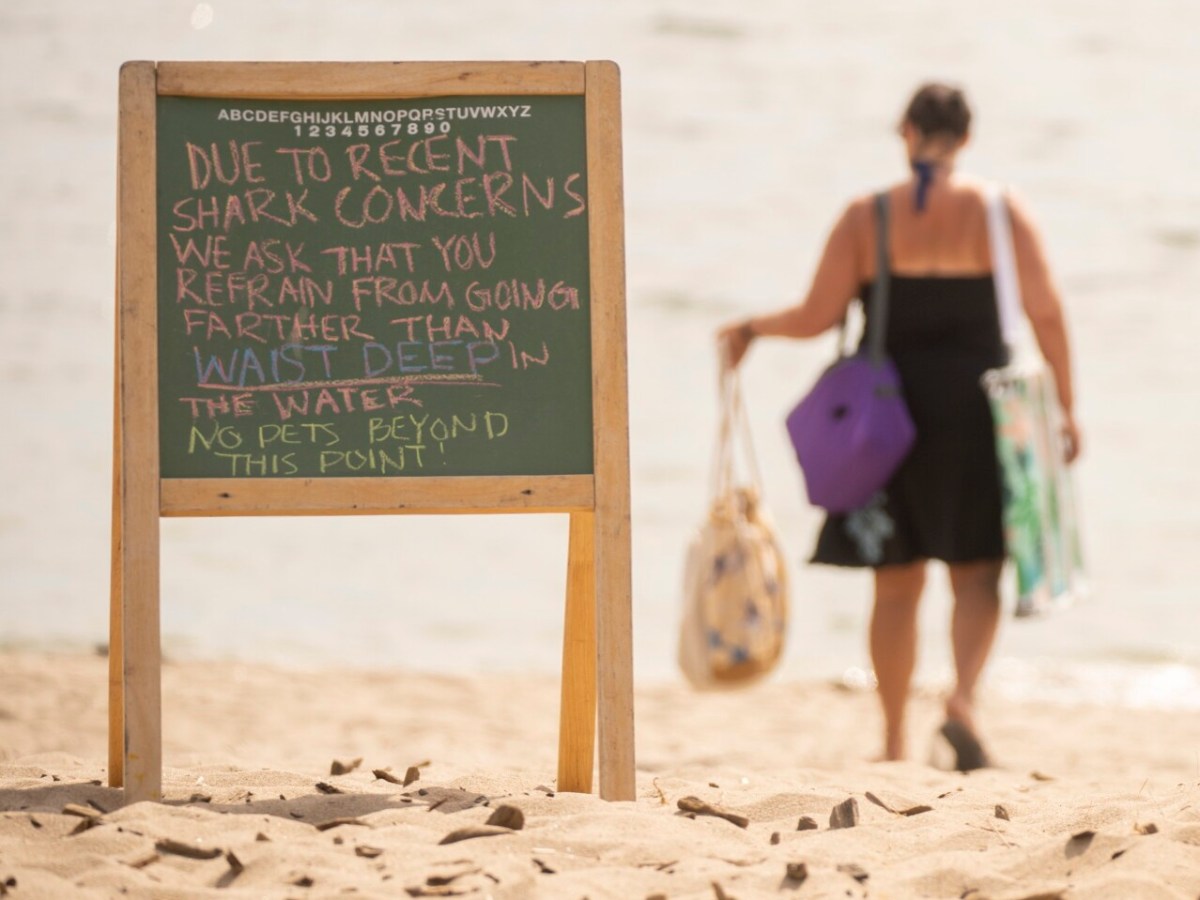 ABCDEFGHIJKLMNOPQRSTUVWXYZ
1234567890
DUE TO RECENT
SHARK CONCERNS
WE ASK THAT YOU
REFRAIN FROM GOING
FARTHER THAN
WAIST DEEP IN
THE WATER
NO PETS BEYOND
THIS POINT!